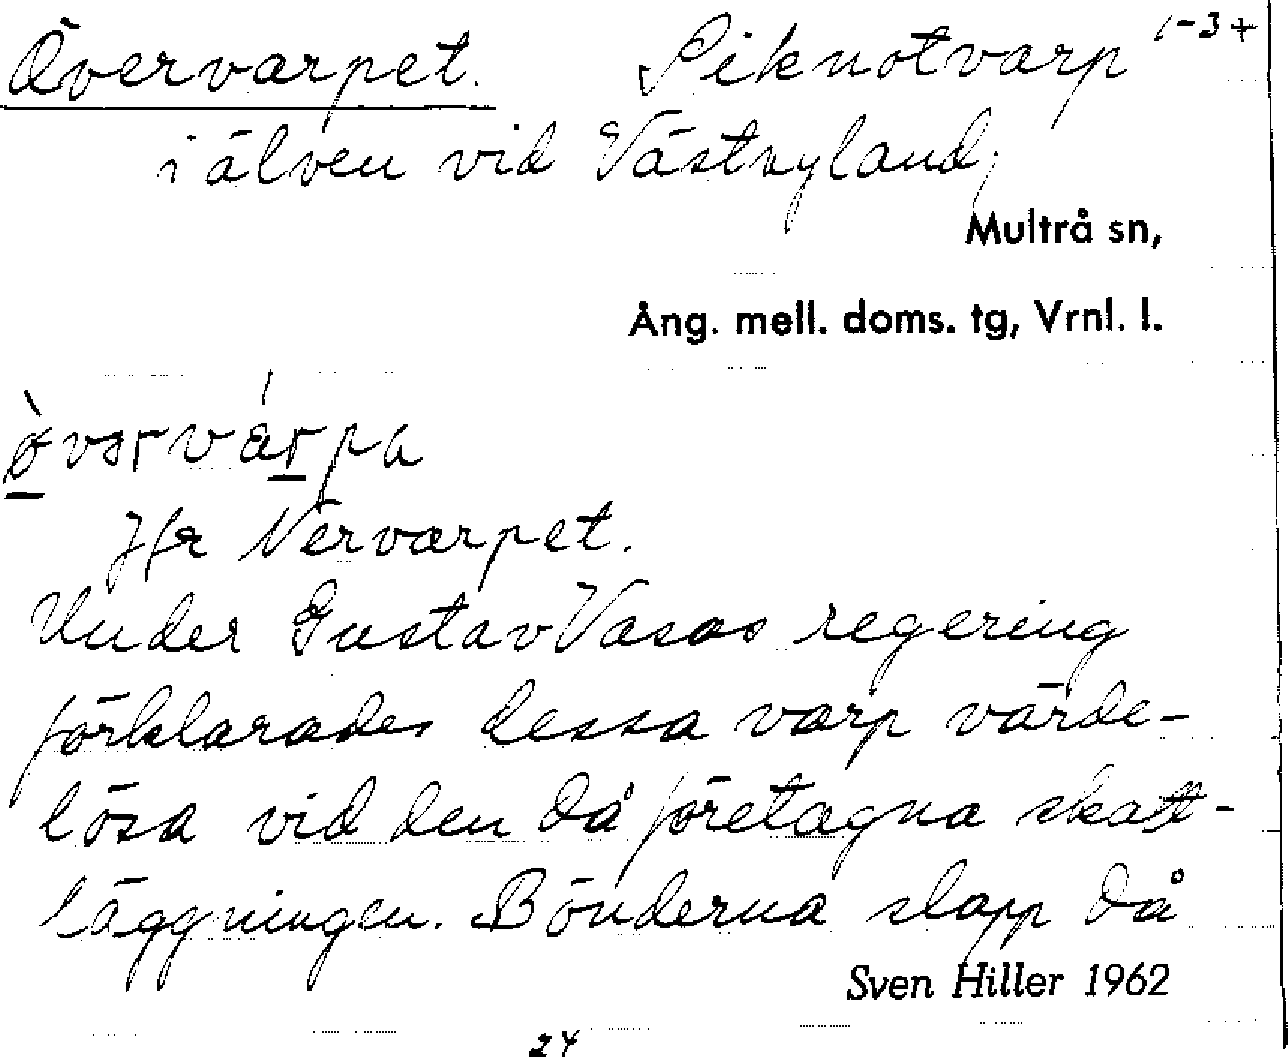 Övervarpet. Siknotvarp 1-3+
i älven vid Västnyland,
Multrå sn,
Ång. mell. doms. tg, Vrnl. l.
Jfr Nervarpet.
Under Gustav Vasas regering
förklarades dessa varp värde-
lösa vid den då företagna skatt-
läggningen. Bönderna slapp då
Sven Hiller 1962
24